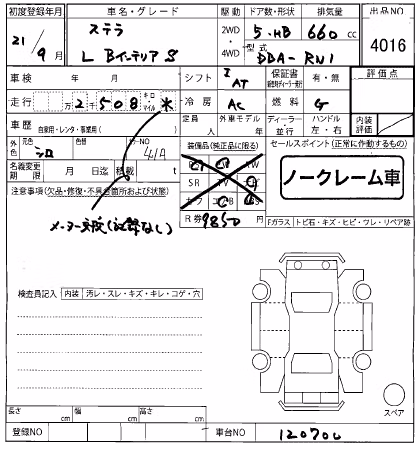 初度登録年月 車名・グレード 駆動 ドア数・形状 排気量 出品NO
21/9月 ステラ L BインテリアS 2WD・4WD 5・HB 660cc 4016
型式 DBA-RN1
車検 年 月 シフト I AT 保証書 有・無 評価点
走行 万2千508 キロ マイル ※ 冷房 AC 燃料 G
車歴 自家用・レンタ・事業用( ) 定員 人 外車モデル 年 ディーラー 並行 ハンドル 左・右 内装評価
外色 元色 シロ 色替 カラーNO 41A 装備品(純正品に限る) セールスポイント(正常に作動するもの)
名義変更期限 月 日迄 積載 t SR TV ノークレーム車
注意事項(欠品・修復・不具合箇所および状態) ナビ
メーター交換(記録なし) R券 9850円 Fガラス トビ石・キズ・ヒビ・ワレ・リペア跡
検査員記入 内装 汚レ・スレ・キズ・キレ・コゲ・穴
スペア
長さ cm 幅 cm 高さ cm
登録NO 車台NO 120700